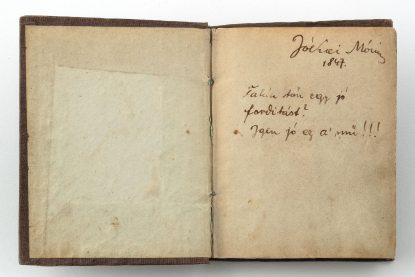 Jókai Móric
1847.
egy jó
fordítást?
Igen jó ez a' mű!!!